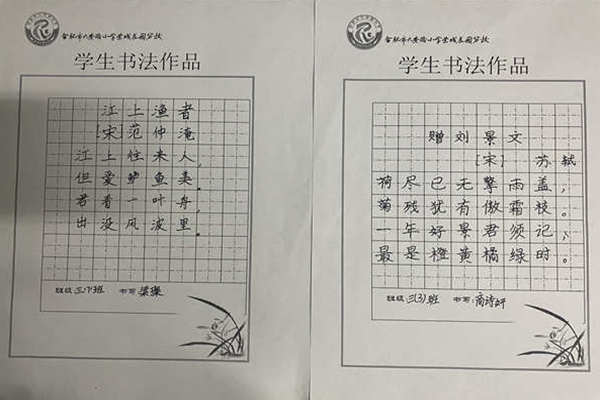 合肥市六安路小学荣城花园分校
学生书法作品
江上渔者
[宋]范仲淹
江上往来人,
但爱鲈鱼美。
君看一叶舟,
出没风波里。
班级:三(7)班 书写:梁璨
合肥市六安路小学荣城花园分校
学生书法作品
赠刘景文
[宋] 苏轼
荷尽已无擎雨盖,
菊残犹有傲霜枝。
一年好景君须记、
最是橙黄橘绿时。
班级:三(3)班 书写:商诗妍